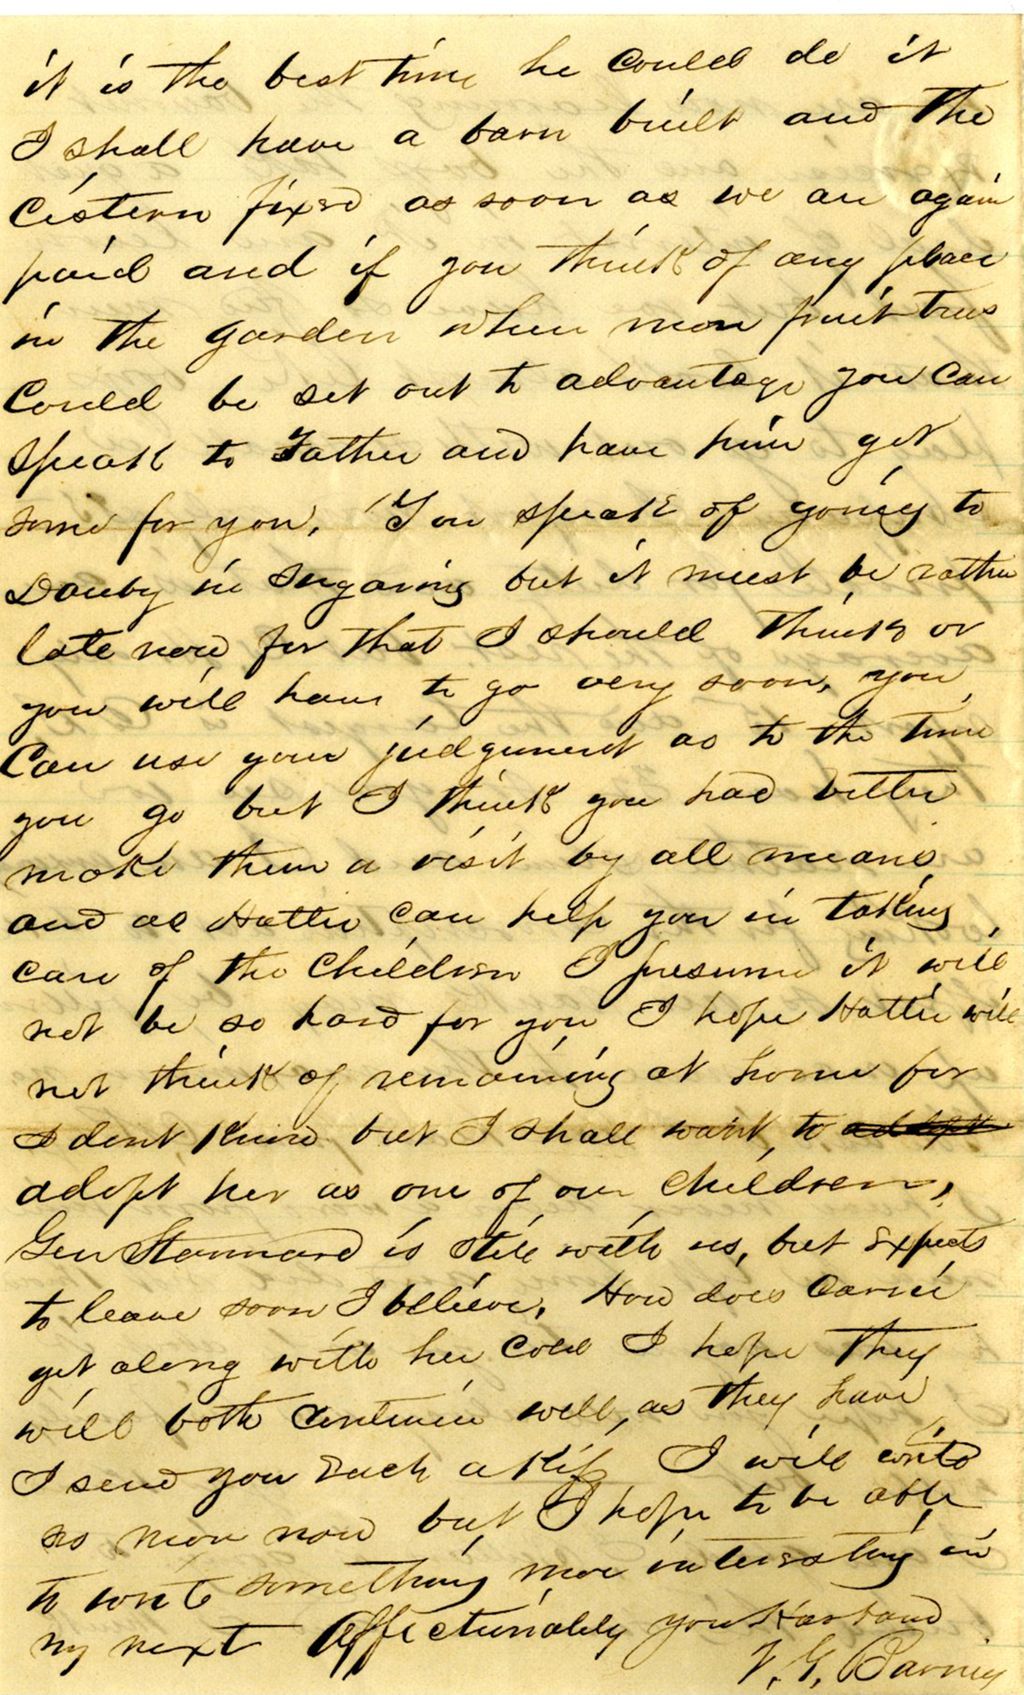 it is the best time he could do it
I shall have a barn built and the
Cistern fixed as soon as we are again
paid and if you think of any place
in the garden when more fruit trees
Could be set out to advantage you Can
Speak to Father and have him get
some for you, You speak of going to
Danby in Sugaring but it must be rather
late now for that I should think or
you will have to go very soon, you
Can use your judgement as to the time
you go but I think you had better
make them a visit by all means
and as Hattie can help you in taking
care of the Children I presume it will
not be so hard for you I hope Hattie will
not think of remaining at home for
I dont know but I shall want to adopt
adopt her as one of our Children,
Gen Stannard is still with us, but expects
to leave soon I believe, How does Carrie
get along with her cold I hope they
will both continue well, as they have
I send you Each a Kiss I will write
no more now but I hope to be able
to write something more interesting in
my next Affectionably your Husband
V. G. Barney